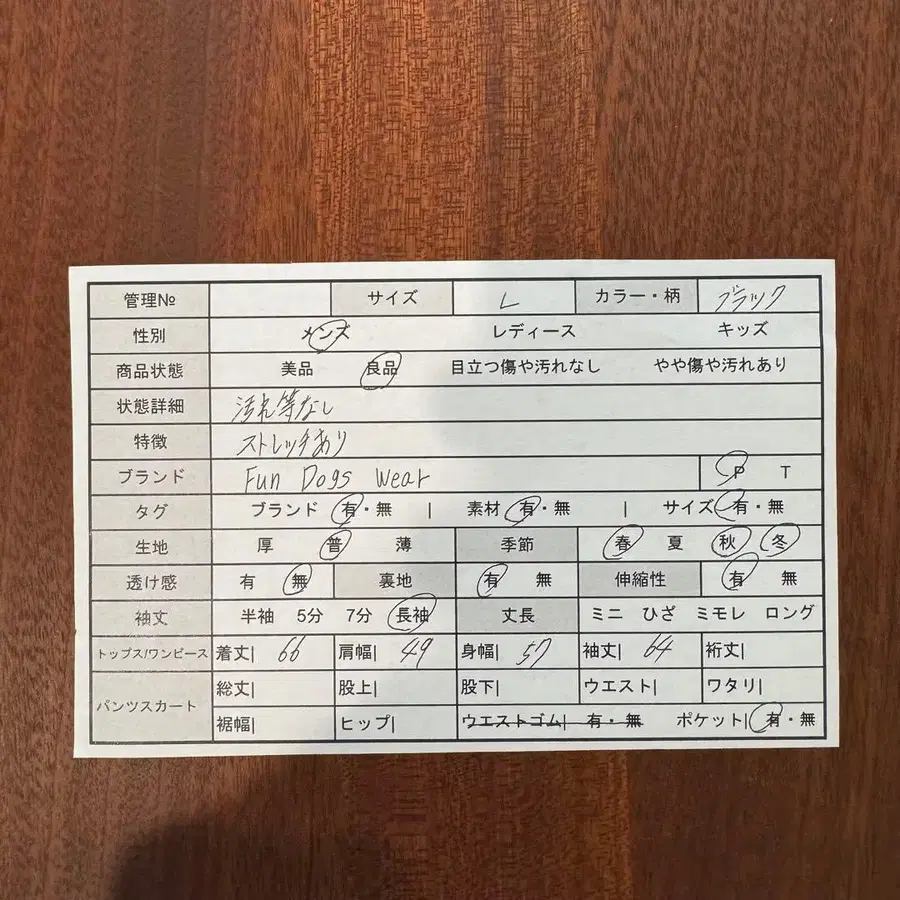 管理№ サイズ L カラー・柄 ブラック
性別 メンズ レディース キッズ
商品状態 美品 良品 目立つ傷や汚れなし やや傷や汚れあり
状態詳細 汚れ等なし
特徴 ストレッチあり
ブランド Fun Dogs Wear P T
タグ ブランド 有・無 | 素材 有・無 | サイズ 有・無
生地 厚 普 薄 季節 春 夏 秋 冬
透け感 有 無 裏地 有 無 伸縮性 有 無
袖丈 半袖 5分 7分 長袖 丈長 ミニ ひざ ミモレ ロング
トップス/ワンピース 着丈| 66 肩幅| 49 身幅| 57 袖丈| 64 裄丈|
パンツスカート 総丈| 股上| 股下| ウエスト| ワタリ|
裾幅| ヒップ| ウエストゴム| 有・無 ポケット| 有・無